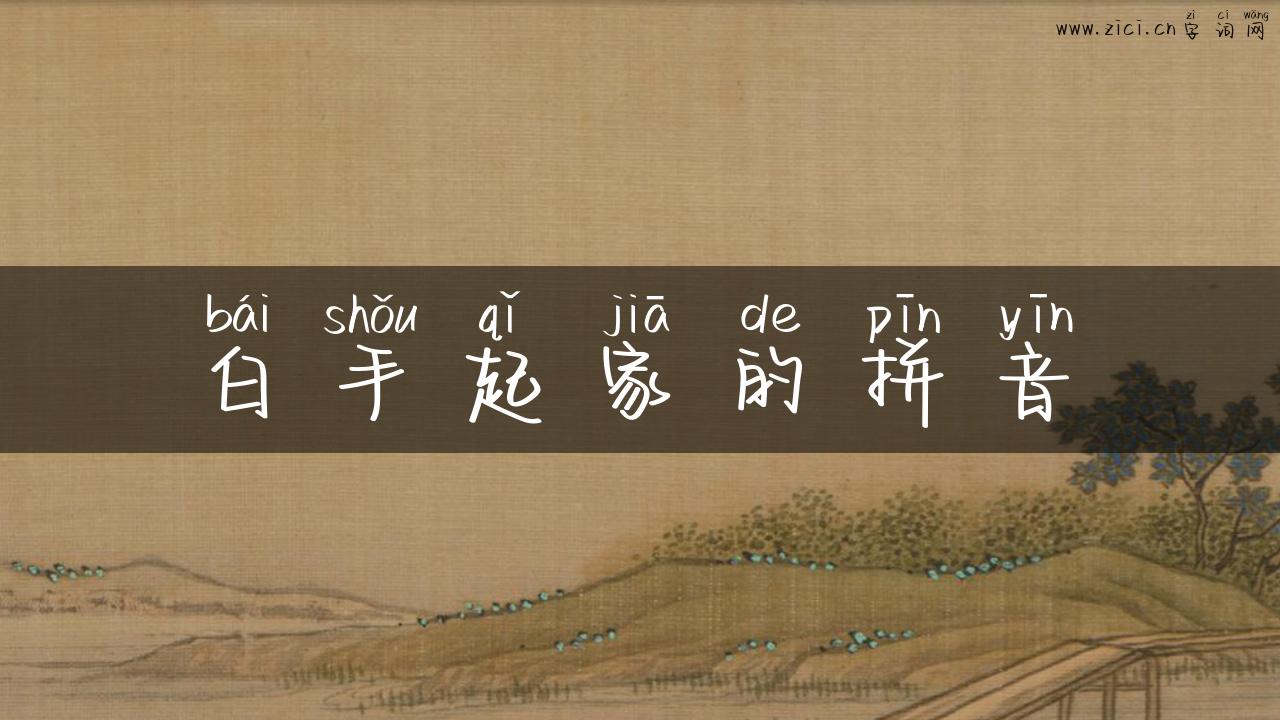 zì cí wǎng
www.zici.cn字词网
bái shǒu qǐ jiā de pīn yīn
白手起家的拼音